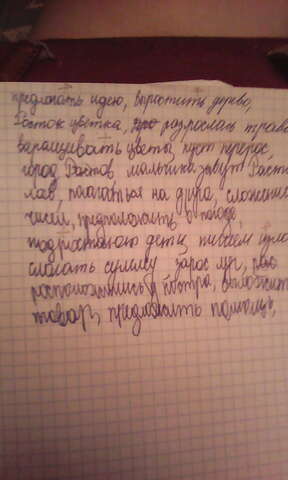 предлагать идею, вырастить дерево,
Росток цветка, разрослась трава
выращивать цвета, куст перерос,
город Ростов мальчика зовут Рости
слав, полагаться на друга, сложение
чисел, предположить о походе,
подрастают дети, пишем
слагать сумму зарос луг,
расположились у костра,
товар, предложить помощь,